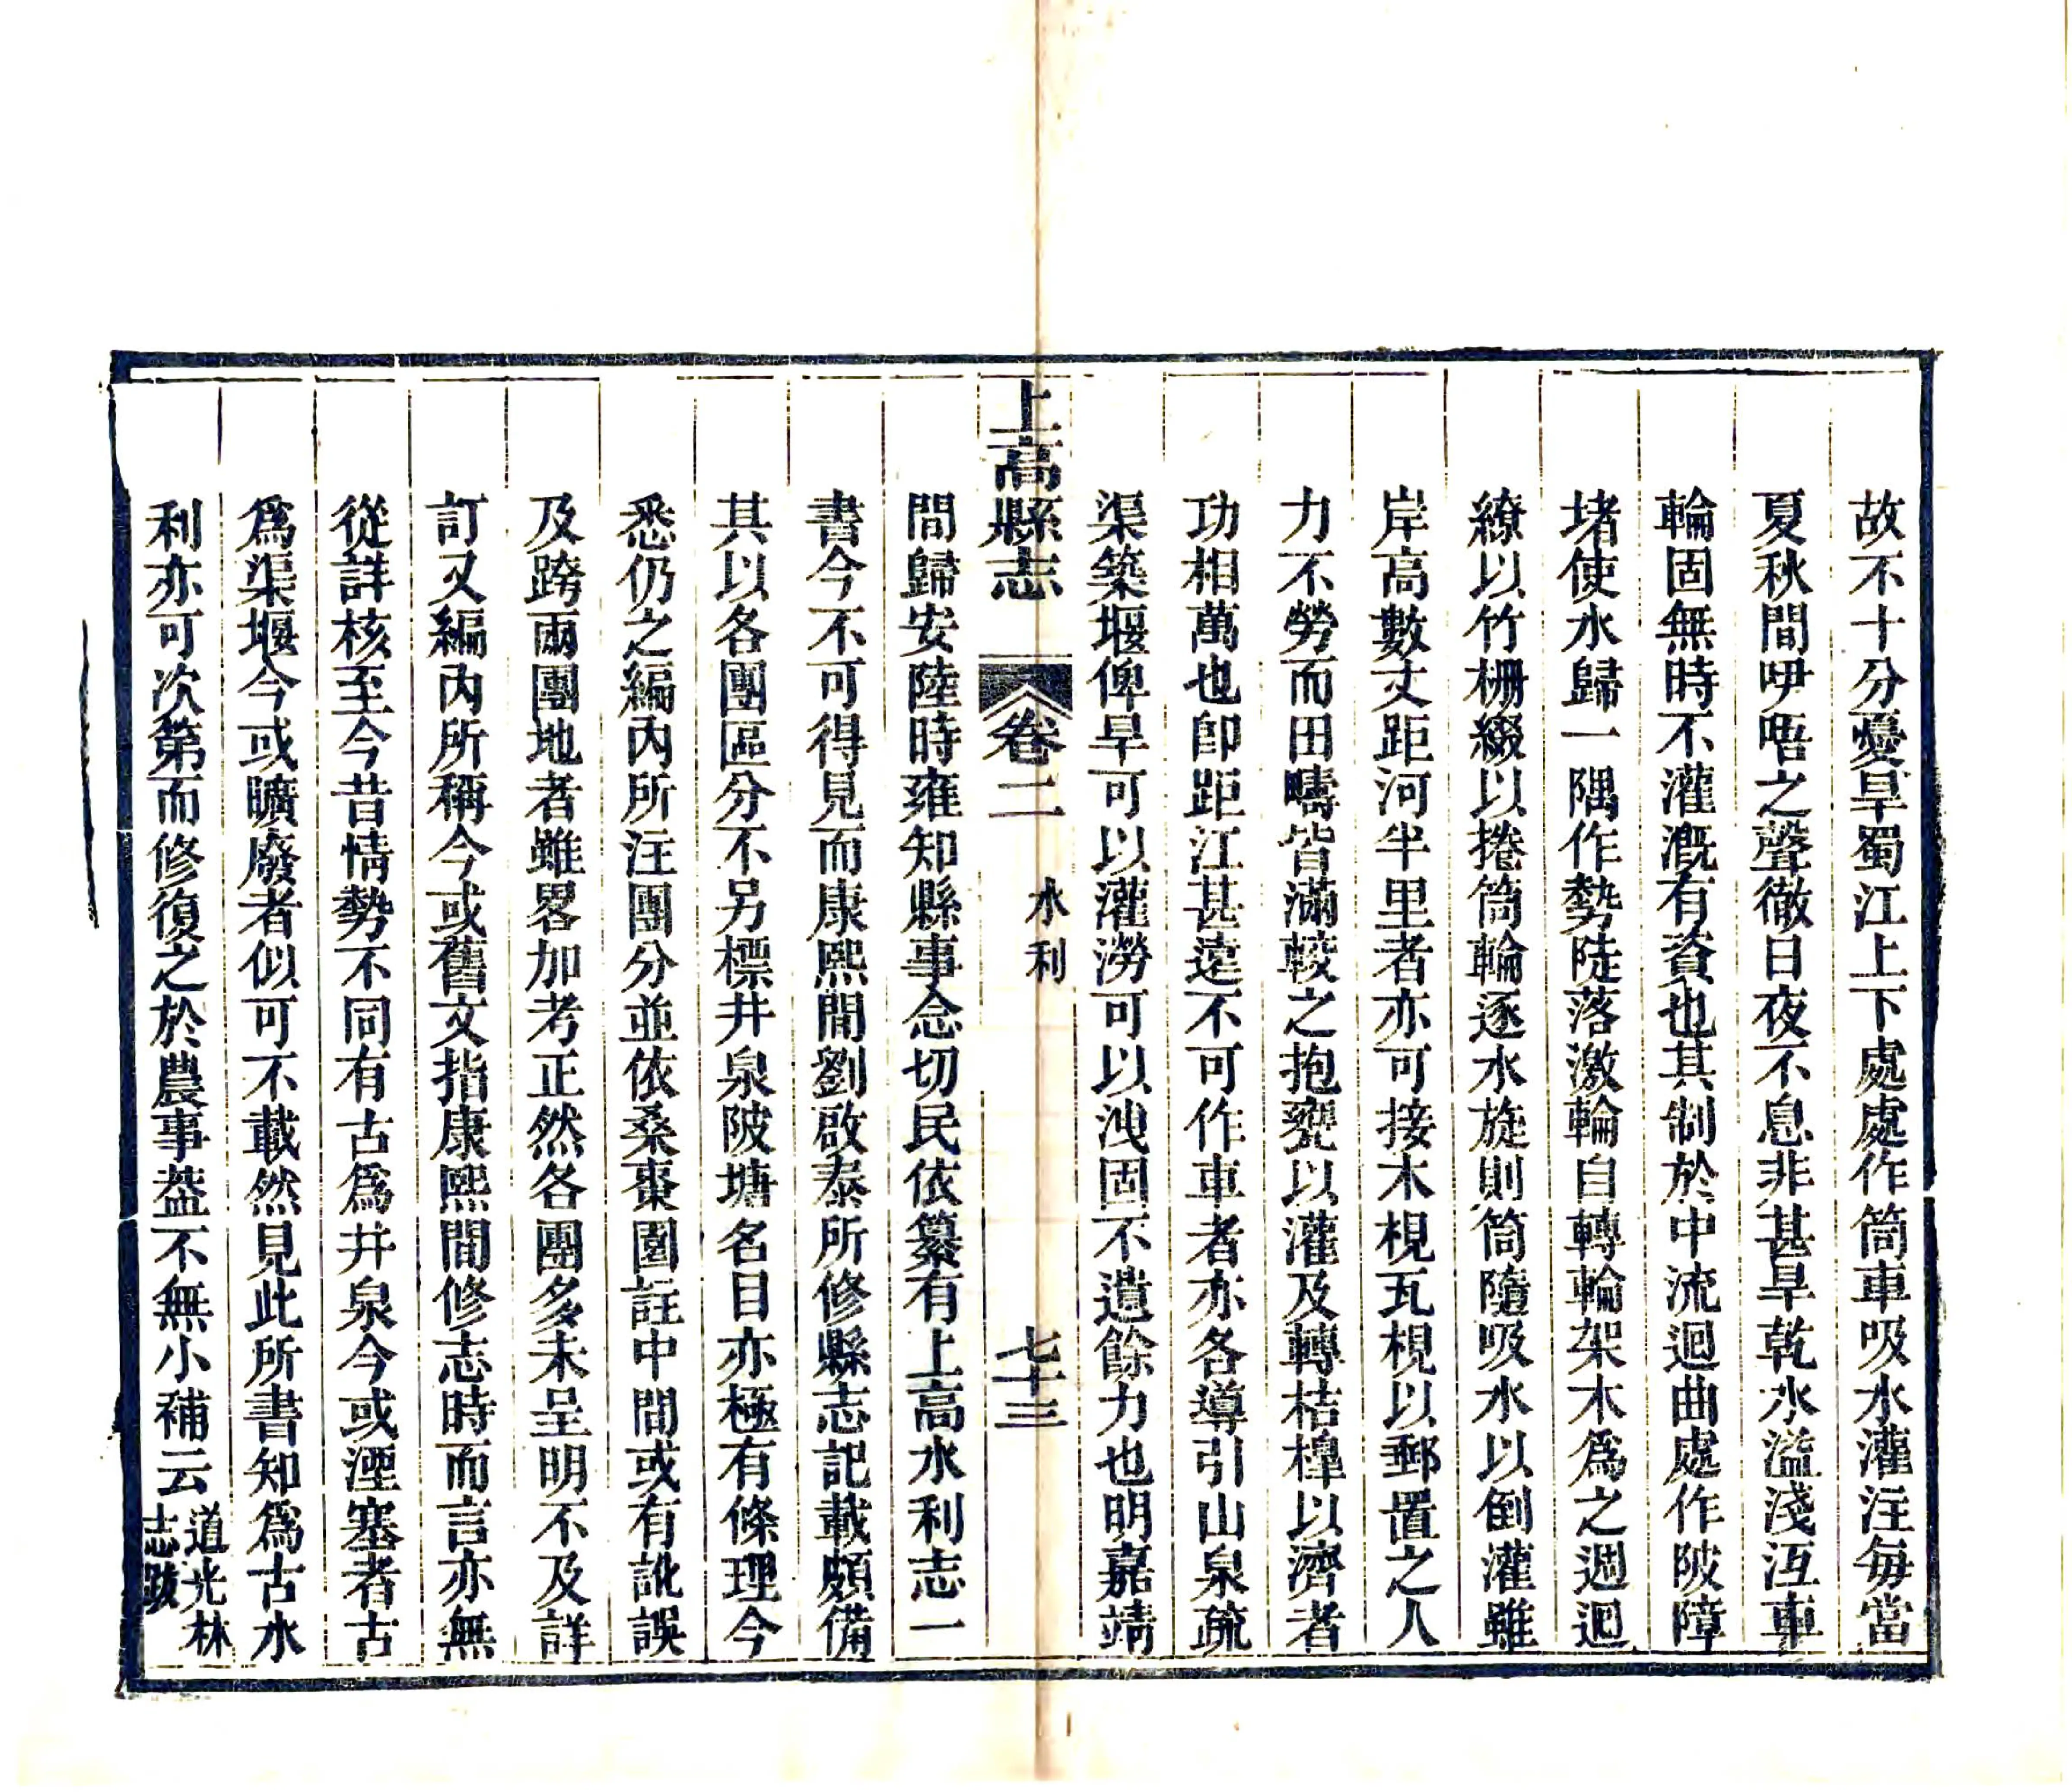 故不十分憂旱蜀江上下處處作筒車吸水灌注每當
夏秋間咿唔之聲徹日夜不息非甚旱乾水溢淺沍車
輪固無時不灌漑有資也其制於中流迴曲處作陂障
堵使水歸一隅作勢陡落激輪自轉輪架木爲之週迴
繚以竹柵綴以捲筒輪逐水旋則筒隨吸水以倒灌雖
岸高數丈距河半里者亦可接木梘瓦梘以郵置之人
力不勞而田疇皆滿較之抱甕以灌及轉桔橰以濟者
功相萬也卽距江甚遠不可作車者亦各導引山泉疏
渠築堰俾旱可以灌澇可以洩固不遺餘力也明嘉靖
上高縣志 卷二 水利 七十三
間歸安陸時雍知縣事念切民依纂有上高水利志一
書今不可得見而康熙間劉啟泰所修縣志記載頗備
其以各團區分不另標井泉陂塘名目亦極有條理今
悉仍之編內所注團分並依桑棗園註中間或有訛誤
及跨兩團地者雖畧加考正然各團多未呈明不及詳
訂又編內所稱今或舊文指康熙間修志時而言亦無
從詳核至今昔情勢不同有古爲井泉今或湮塞者古
爲渠堰今或曠廢者似可不載然見此所書知爲古水
利亦可次第而修復之於農事葢不無小補云道光林
志跋